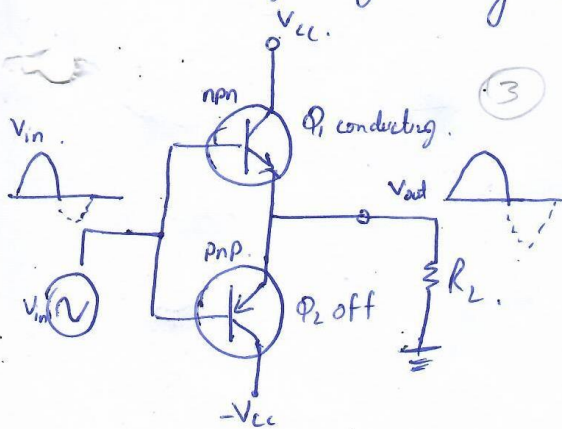 Vcc.
npn
3
Q1 conducting.
Vin
Vout
pnp
Vin
Q2 off
RL.
-Vcc